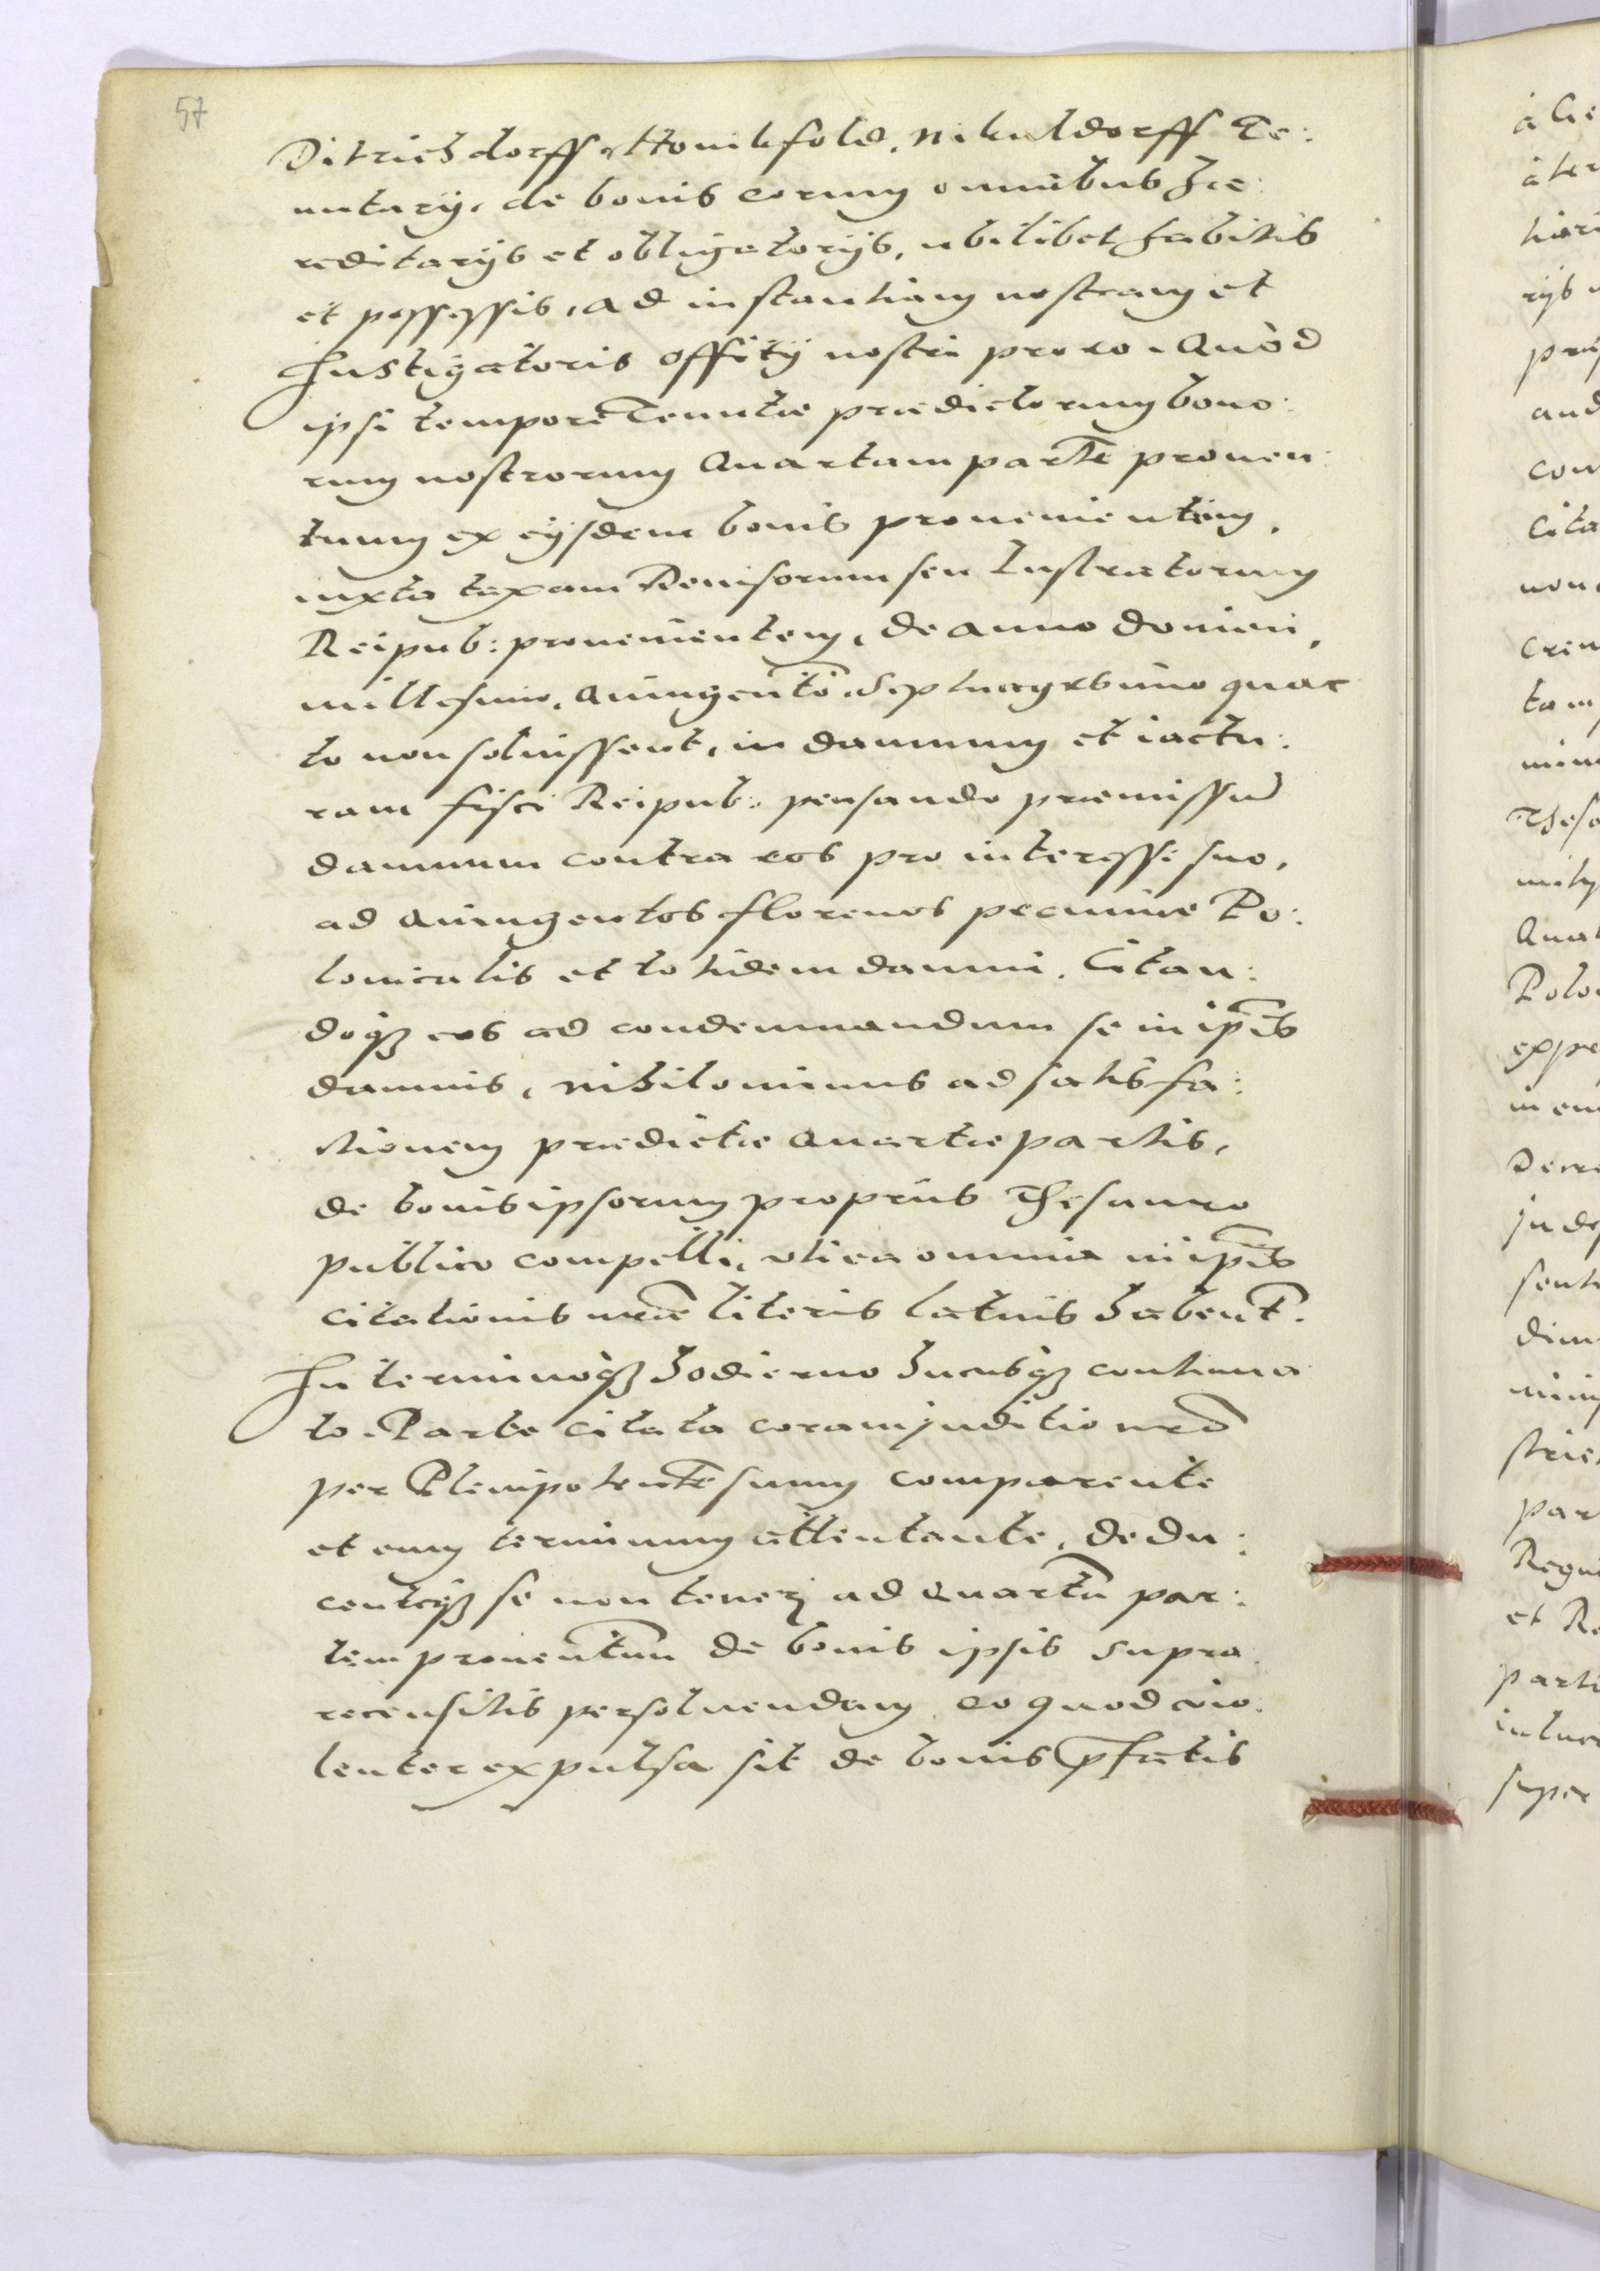 57
Ditrichsdorff, Honikfeld, Nikuldorff Te:
nutarij, de bonis eorum omnibus hæ:
reditarijs et obligatorijs, ubilibet habitis
et possessis, ad instantiam nostram et
Instigatoris officij nostri pro eo. Quòd
ipsi tempore Tenutæ prædictorum bono:
rum nostrorum Quartam parte prouen:
tuum ex eijsdem bonis prouenientem,
iuxta taxam Reuisorum seu Lustratorum
Reipub: prouenientem, de anno domini,
millesimo, Quingento Septuagesimo quar
to non soluissent, in damnum et iactu:
ram fisci Reipub: pensando præmissum
damnum contra eos pro interesse suo,
ad Quingentos florenos pecuniæ Po:
lonicalis et totidem damni. Citan:
doqȝ eos ad condemnandum se in ipsis
damnis, nihilominus ad satisfa:
ctionem prædictæ Quartæ partis,
de bonis ipsorum proprijs Thesauro
publico compelli, uti ea omnia in ipsis
citationis nræ literis latius habent.
In terminoqȝ hodierno hucusqȝ continua
to. Parte citata coram juditio nro
per Plenipotente suum comparente
et eum terminum attentante, dedu:
centeqȝ se non teneri ad Quartam par:
tem prouentuum de bonis ipsis supra
recensitis persoluendam eo quod vio:
lenter expulsa sit de bonis pfatis
à
tam
super